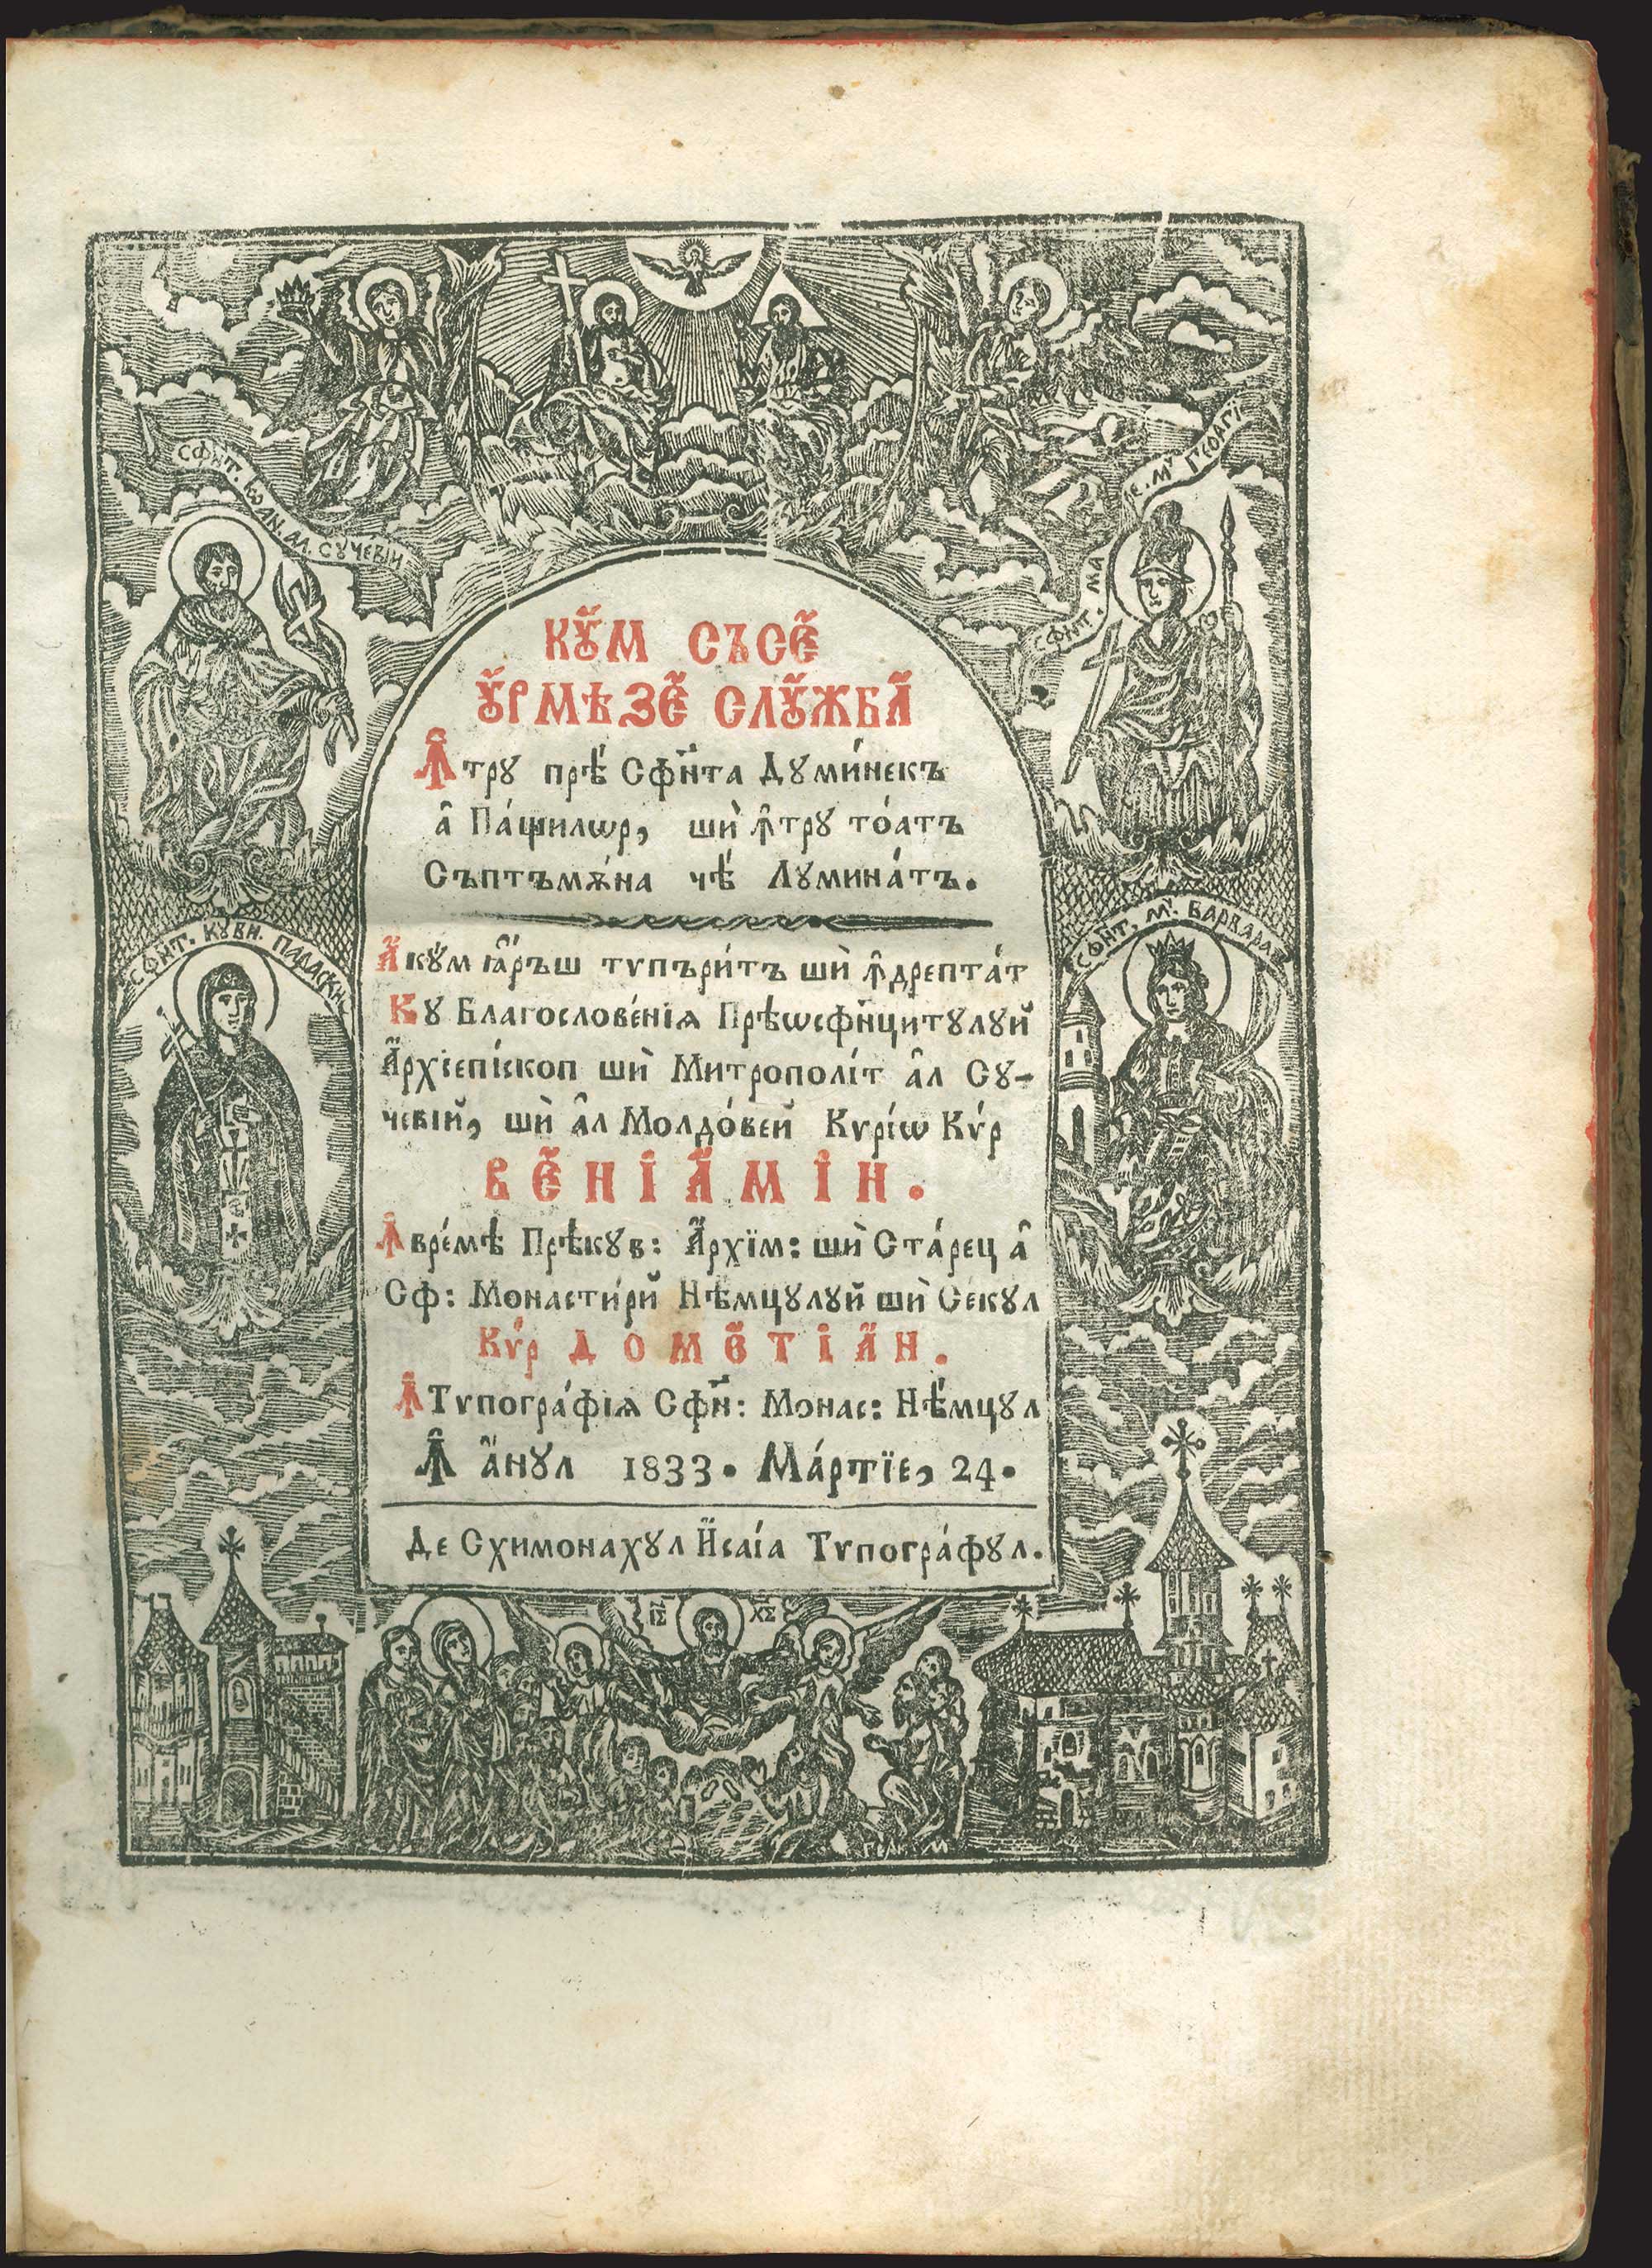 СФН҃Т. ІѠАН. М. СꙊЧЕВІЙ
СФН҃Т. МА
Е. М꙯ ГЕѠРГІ
КꙊ́М СЪСЕ҆́
ᲂУ҆РМѢЗЕ҆́ СЛꙊ́ЖБА҆
Ꙟтрꙋ прѣ́ Сфн҃та Дꙋми́некъ
а҆̑ Па́щилѡр, шѝ ꙟ҆трꙋ то́атъ
Съптъмѫ́на чѣ́ Лꙋмина́тъ.
СФН҃Т. КꙊВИ. ПАРАСКИ
СФН҃Т. М꙯. ВАРВАРА
А҆кꙋ́м ꙗ҆́ръш тѵпъри́тъ шѝ ꙟ҆дрепта́т
Кꙋ Благослове́нїѧ Прѣѡсфн҃цитꙋлꙋй
А҆рхїепі́скоп шѝ Митрополі́т а҆̑л Сꙋ-
чевїй, шѝ а҆̑л Молдо́вей Кѷрі́ѡ Кѵ́р
ВЕ҆НІА҆МІН.
Ꙟ вре́мѣ Прѣкꙋв: А҆рхїм: шѝ Ста́рец а҆̑
Сф: Монасти́рй Нѣмцꙋлꙋй шѝ Се́кꙋл
Кѵ́р ДОМЕ҆ТІА҆Н.
Ꙟ Тѵпогра́фїѧ Сфн҃: Монас: Нѣ́мцꙋл
Ꙟ а҆́нꙋл 1833. Ма́ртїе, 24.
Де Схимонахꙋл И҆саі́а Тѵпогра́фꙋл.
ІС ХС